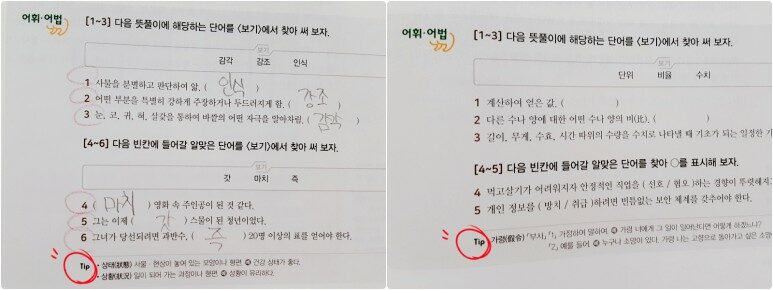 어휘·어법
[1~3] 다음 뜻풀이에 해당하는 단어를 <보기>에서 찾아 써 보자.
보기
감각 강조 인식
1 사물을 분별하고 판단하여 앎. ( 인식 )
2 어떤 부분을 특별히 강하게 주장하거나 두드러지게 함. ( 강조 )
3 눈, 코, 귀, 혀, 살갗을 통하여 바깥의 어떤 자극을 알아차림. ( 감각 )
[4~6] 다음 빈칸에 들어갈 알맞은 단어를 <보기>에서 찾아 써 보자.
보기
갓 마치 즉
4 ( 마치 ) 영화 속 주인공이 된 것 같다.
5 그는 이제 ( 갓 ) 스물이 된 청년이었다.
6 그녀가 당선되려면 과반수, ( 즉 ) 20명 이상의 표를 얻어야 한다.
Tip
• 상태(狀態) 사물·현상이 놓여 있는 모양이나 형편. 예 건강 상태가 좋다.
• 상황(狀況) 일이 되어 가는 과정이나 형편. 예 상황이 유리하다.
어휘·어법
[1~3] 다음 뜻풀이에 해당하는 단어를 <보기>에서 찾아 써 보자.
보기
단위 비율 수치
1 계산하여 얻은 값. ( )
2 다른 수나 양에 대한 어떤 수나 양의 비(比). ( )
3 길이, 무게, 수효, 시간 따위의 수량을 수치로 나타낼 때 기초가 되는 일정한
[4~5] 다음 빈칸에 들어갈 알맞은 단어를 찾아 ○를 표시해 보자.
4 먹고살기가 어려워지자 안정적인 직업을 ( 선호 / 혐오 )하는 경향이 뚜렷해지
5 개인 정보를 ( 방치 / 취급 )하려면 빈틈없는 보안 체계를 갖추어야 한다.
Tip 가령(假令) 「부사」 「1」 가정하여 말하여. 예 가령 너에게 그 일이 일어난다면 어떻게 하겠느냐?
「2」 예를 들어. 예 누구나 소망이 있다. 가령 나는 고향으로 돌아가고 싶은 소망